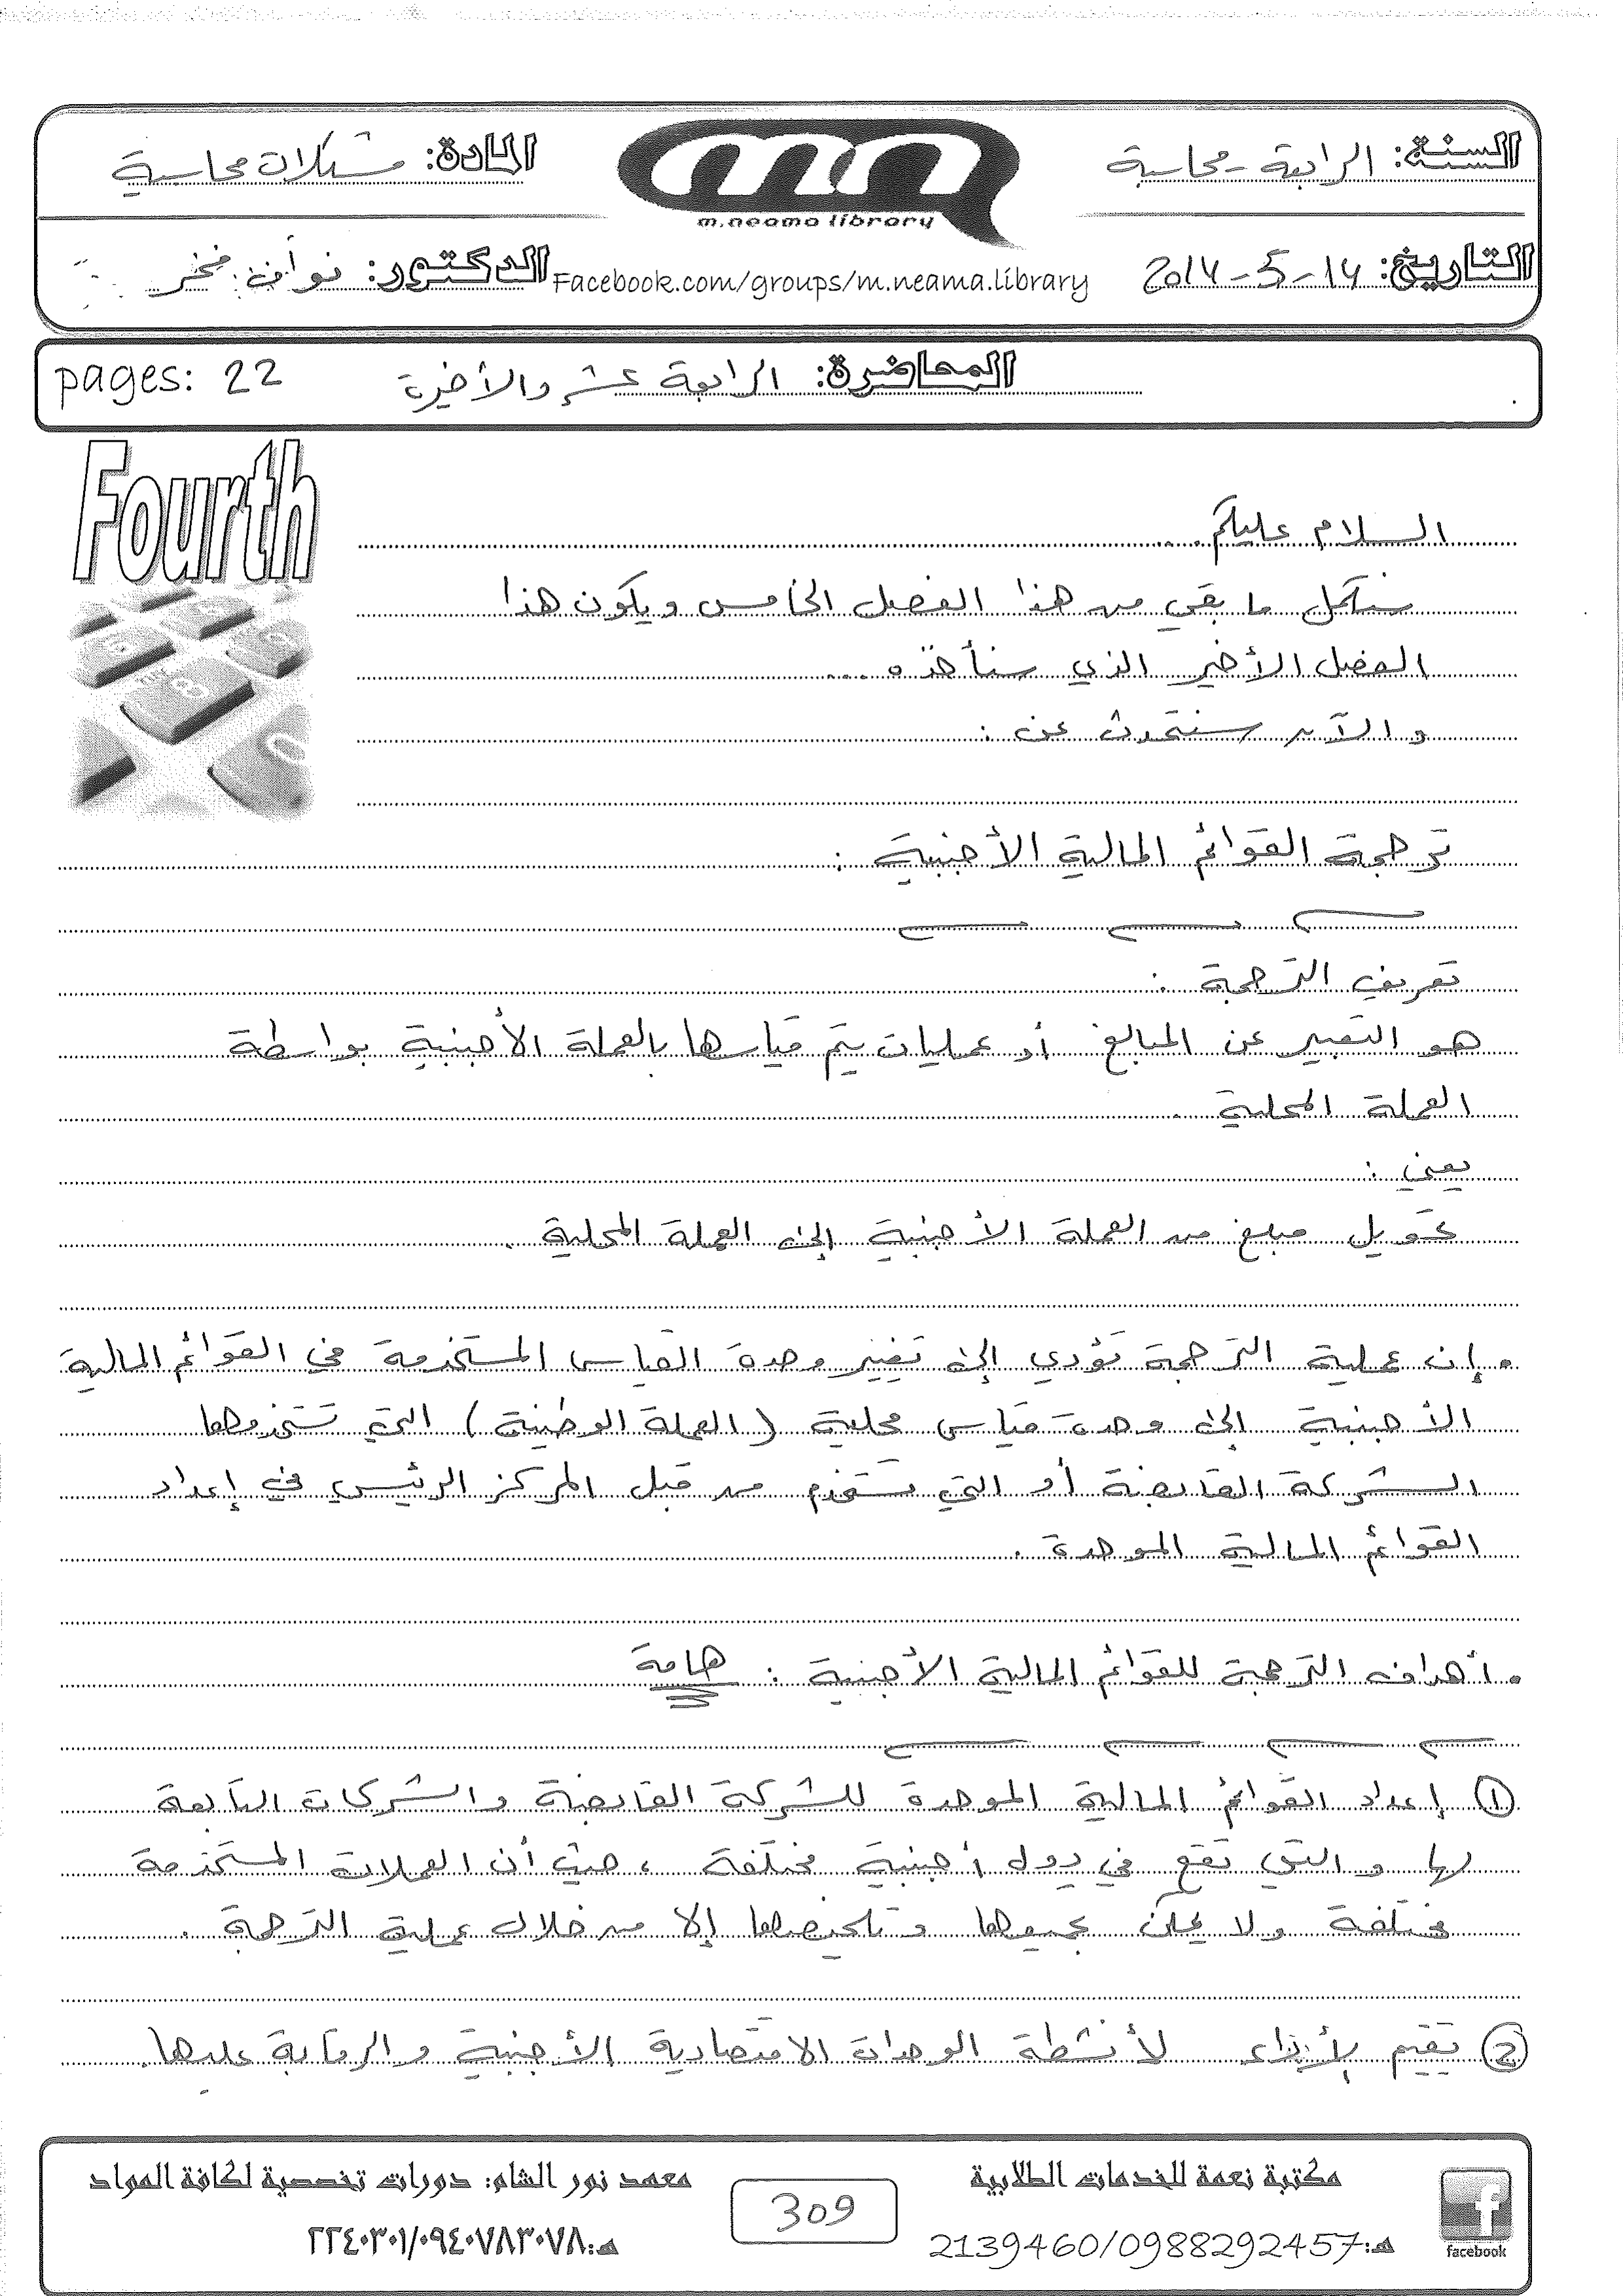 السنة: الرابعة - محاسبة
المادة: مشكلات محاسبية
m.neama library
التاريخ: 14-5-2014
Facebook.com/groups/m.neama.library
الدكتور: نواف فخر
المحاضرة: الرابعة عشر والأخيرة
pages: 22
Fourth
السلام عليكم ...
سنكمل ما بقي من هذا الفصل الخامس ويكون هذا
الفصل الأخير الذي سنأخذه ...
والآن سنتحدث عن :
ترجمة القوائم المالية الأجنبية :
تعريف الترجمة :
هو التعبير عن المبالغ أو عمليات يتم قياسها بالعملة الأجنبية بواسطة
العملة المحلية .
يعني :
تحويل مبلغ من العملة الأجنبية إلى العملة المحلية .
• إن عملية الترجمة تؤدي إلى تغيير وحدة القياس المستخدمة في القوائم المالية
الأجنبية إلى وحدة قياس محلية (العملة الوطنية) التي تستخدمها
الشركة القابضة أو التي تستخدم من قبل المركز الرئيسي في إعداد
القوائم المالية الموحدة .
• أهداف الترجمة للقوائم المالية الأجنبية : هامة
① إعداد القوائم المالية الموحدة للشركة القابضة والشركات التابعة
لها والتي تقع في دول أجنبية مختلفة ، حيث أن العملات المستخدمة
مختلفة ولا يمكن تجميعها وتلخيصها إلا من خلال عملية الترجمة .
② تقييم الأداء لأنشطة الوحدات الاقتصادية الأجنبية والرقابة عليها.
مكتبة نعمة للخدمات الطلابية
هـ: 2139460/0988292457
facebook
309
معهد نور الشام: دورات تخصصية لكافة المواد
هـ: ٢٢٤٠٣٠١/٠٩٤٠٧٨٣٠٧٨